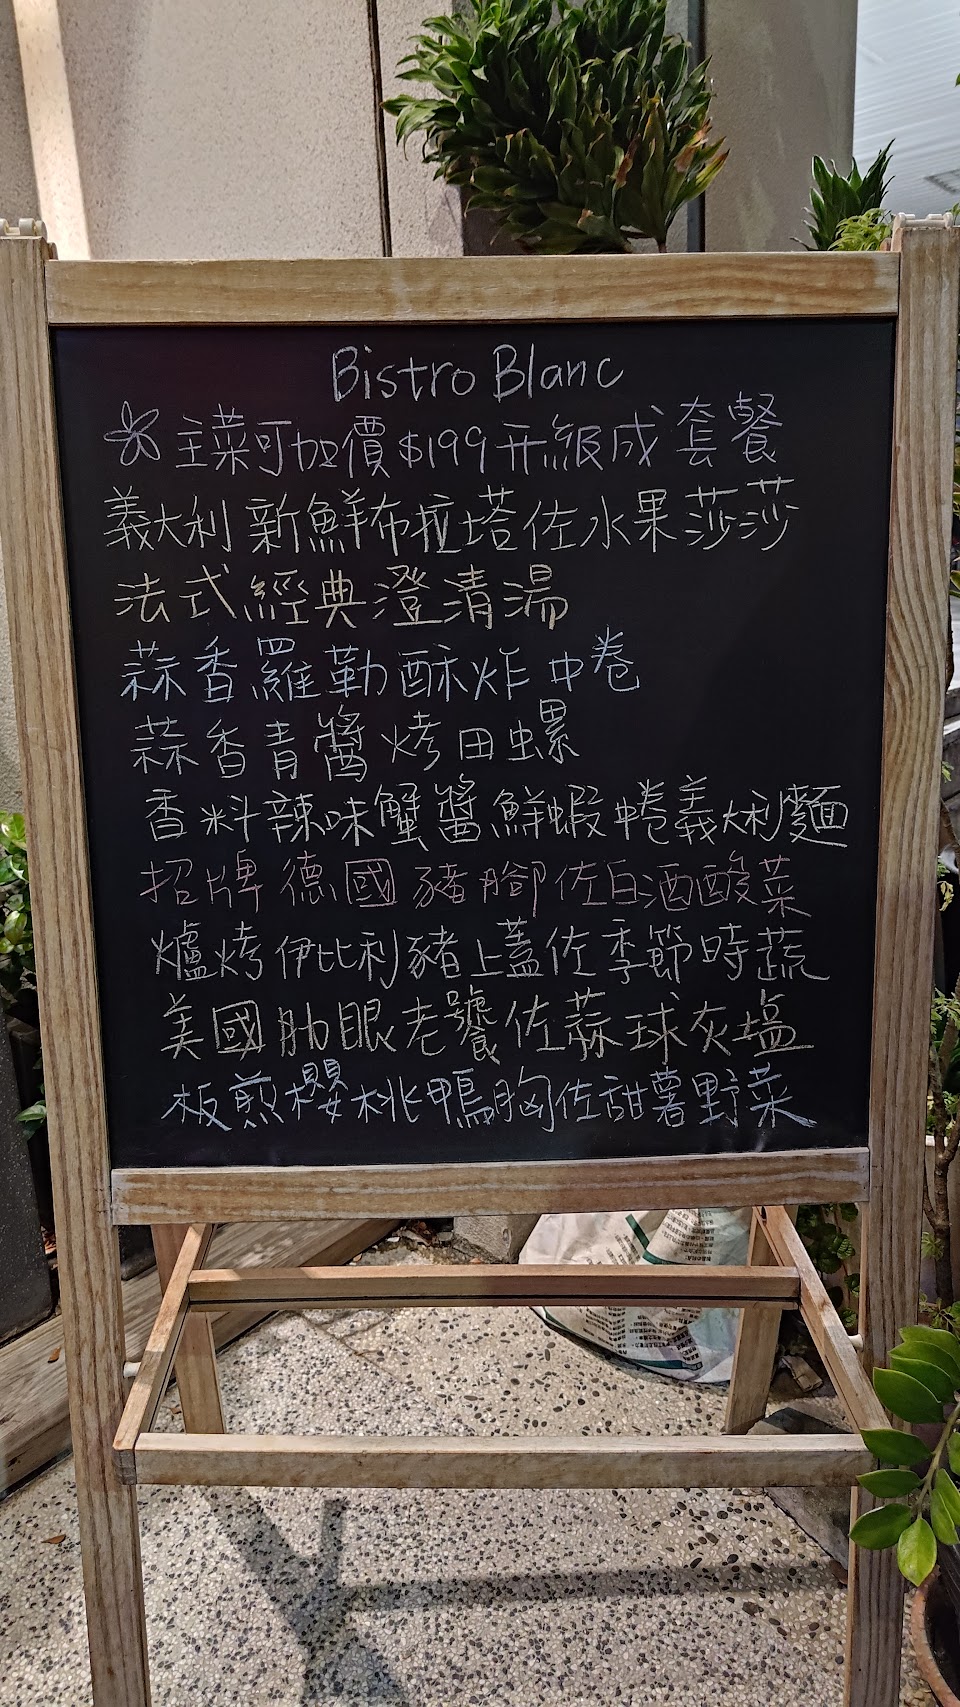 Bistro Blanc
主菜可加價$199升級成套餐
義大利新鮮布拉塔佐水果莎莎
法式經典澄清湯
蒜香羅勒酥炸中卷
蒜香青醬烤田螺
香料辣味蟹醬鮮蝦中卷義大利麵
招牌德國豬腳佐白酒酸菜
爐烤伊比利豬上蓋佐季節時蔬
美國肋眼老饕佐蒜球灰塩
板煎櫻桃鴨胸佐甜薯野菜